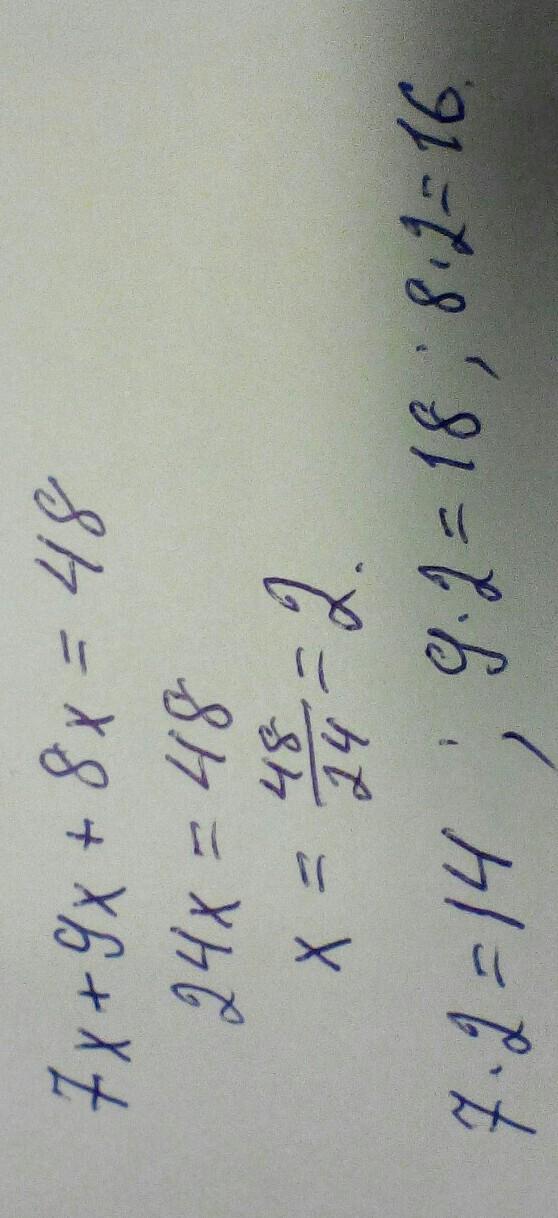 7x + 9x + 8x = 48
24x = 48
x = 48/24 = 2.
7·2 = 14 ; 9·2 = 18 ; 8·2 = 16.